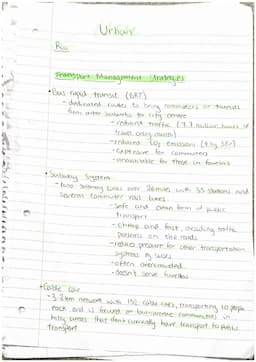 Urban
Rio
Transport Management Strategies
• Bus rapid transit (BRT)
- dedicated routes to bring commuters or tourists
from outer suburbs to city centre
- reduced traffic (7.7 million hours of
travel only
- reduced CO2 emissions (
- expensive for commuters
- unavailable for those in favelas
• Subway System
- two subway lines over 26 miles with 35 stations and
several commuter rail lines
- safe and clean form of public
transport
- cheap and fast, avoiding traffic
problems on the roads
- reduces pressure for other transportation
systems eg buses
- often overcrowded
- doesn't serve favelas
• Cable car
- 3.5km network with 152 cable cars, transporting 10 people
each and is focused on low-income communities in
hilly areas that don't currently have transport to public
transport